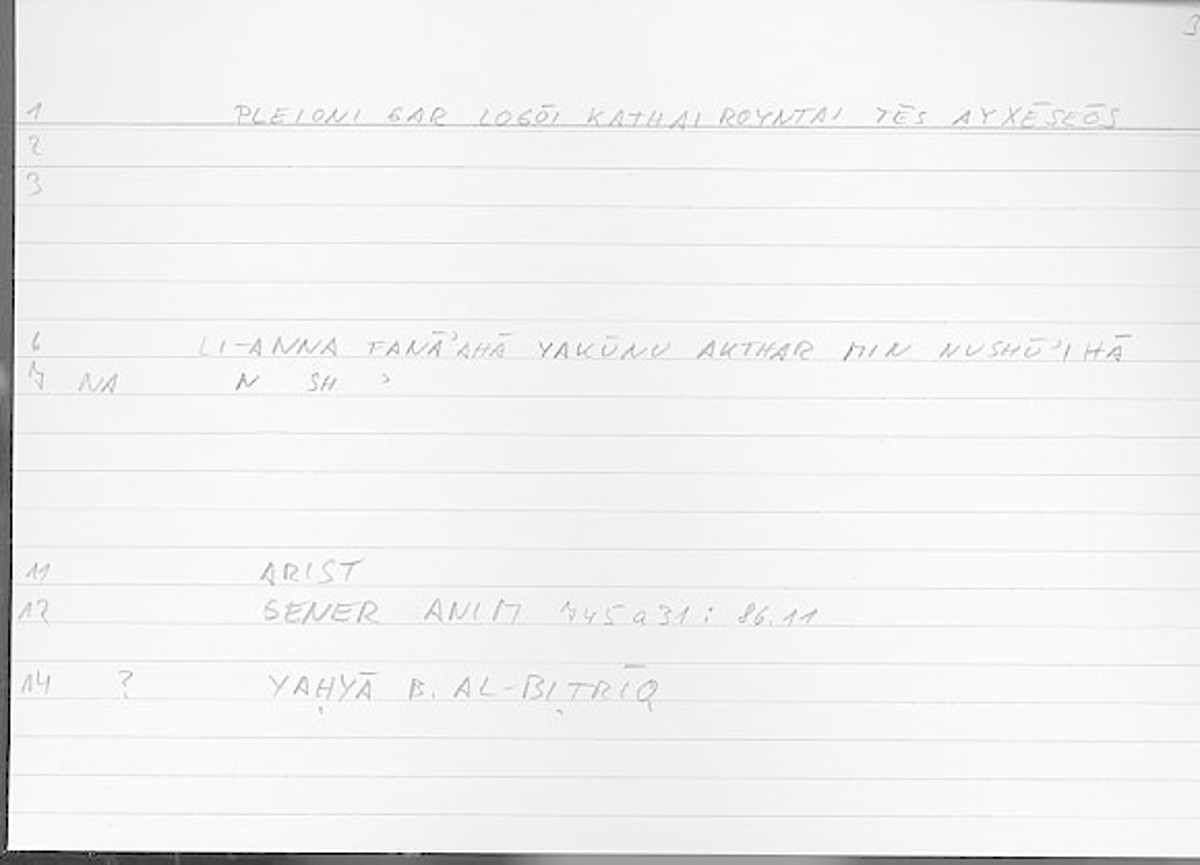 3
1 PLEIONI GAR LOGŌI KATHAIROYNTAI TĒS AYXĒSEŌS
2
3
6 LI-ANNA FANĀʾAHĀ YAKŪNU AKTHAR MIN NUSHŪʾIHĀ
7 NA N SH ʾ
11 ARIST
12 GENER ANIM 745a31 : 86.11
14 ? YAḤYĀ B. AL-BIṬRĪQ